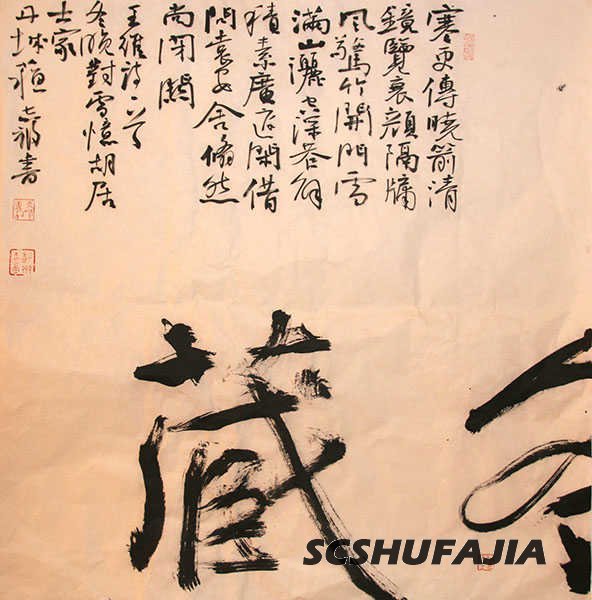 寒更傳曉箭清
鏡覽衰顏隔牖
風驚竹開門雪
滿山灑空深巷靜
積素廣庭閑借
問袁安舍翛然
尚閉關
王維詩一首
冬晚對雪憶胡居
士家
丹城書
藏
SCSHUFAJIA